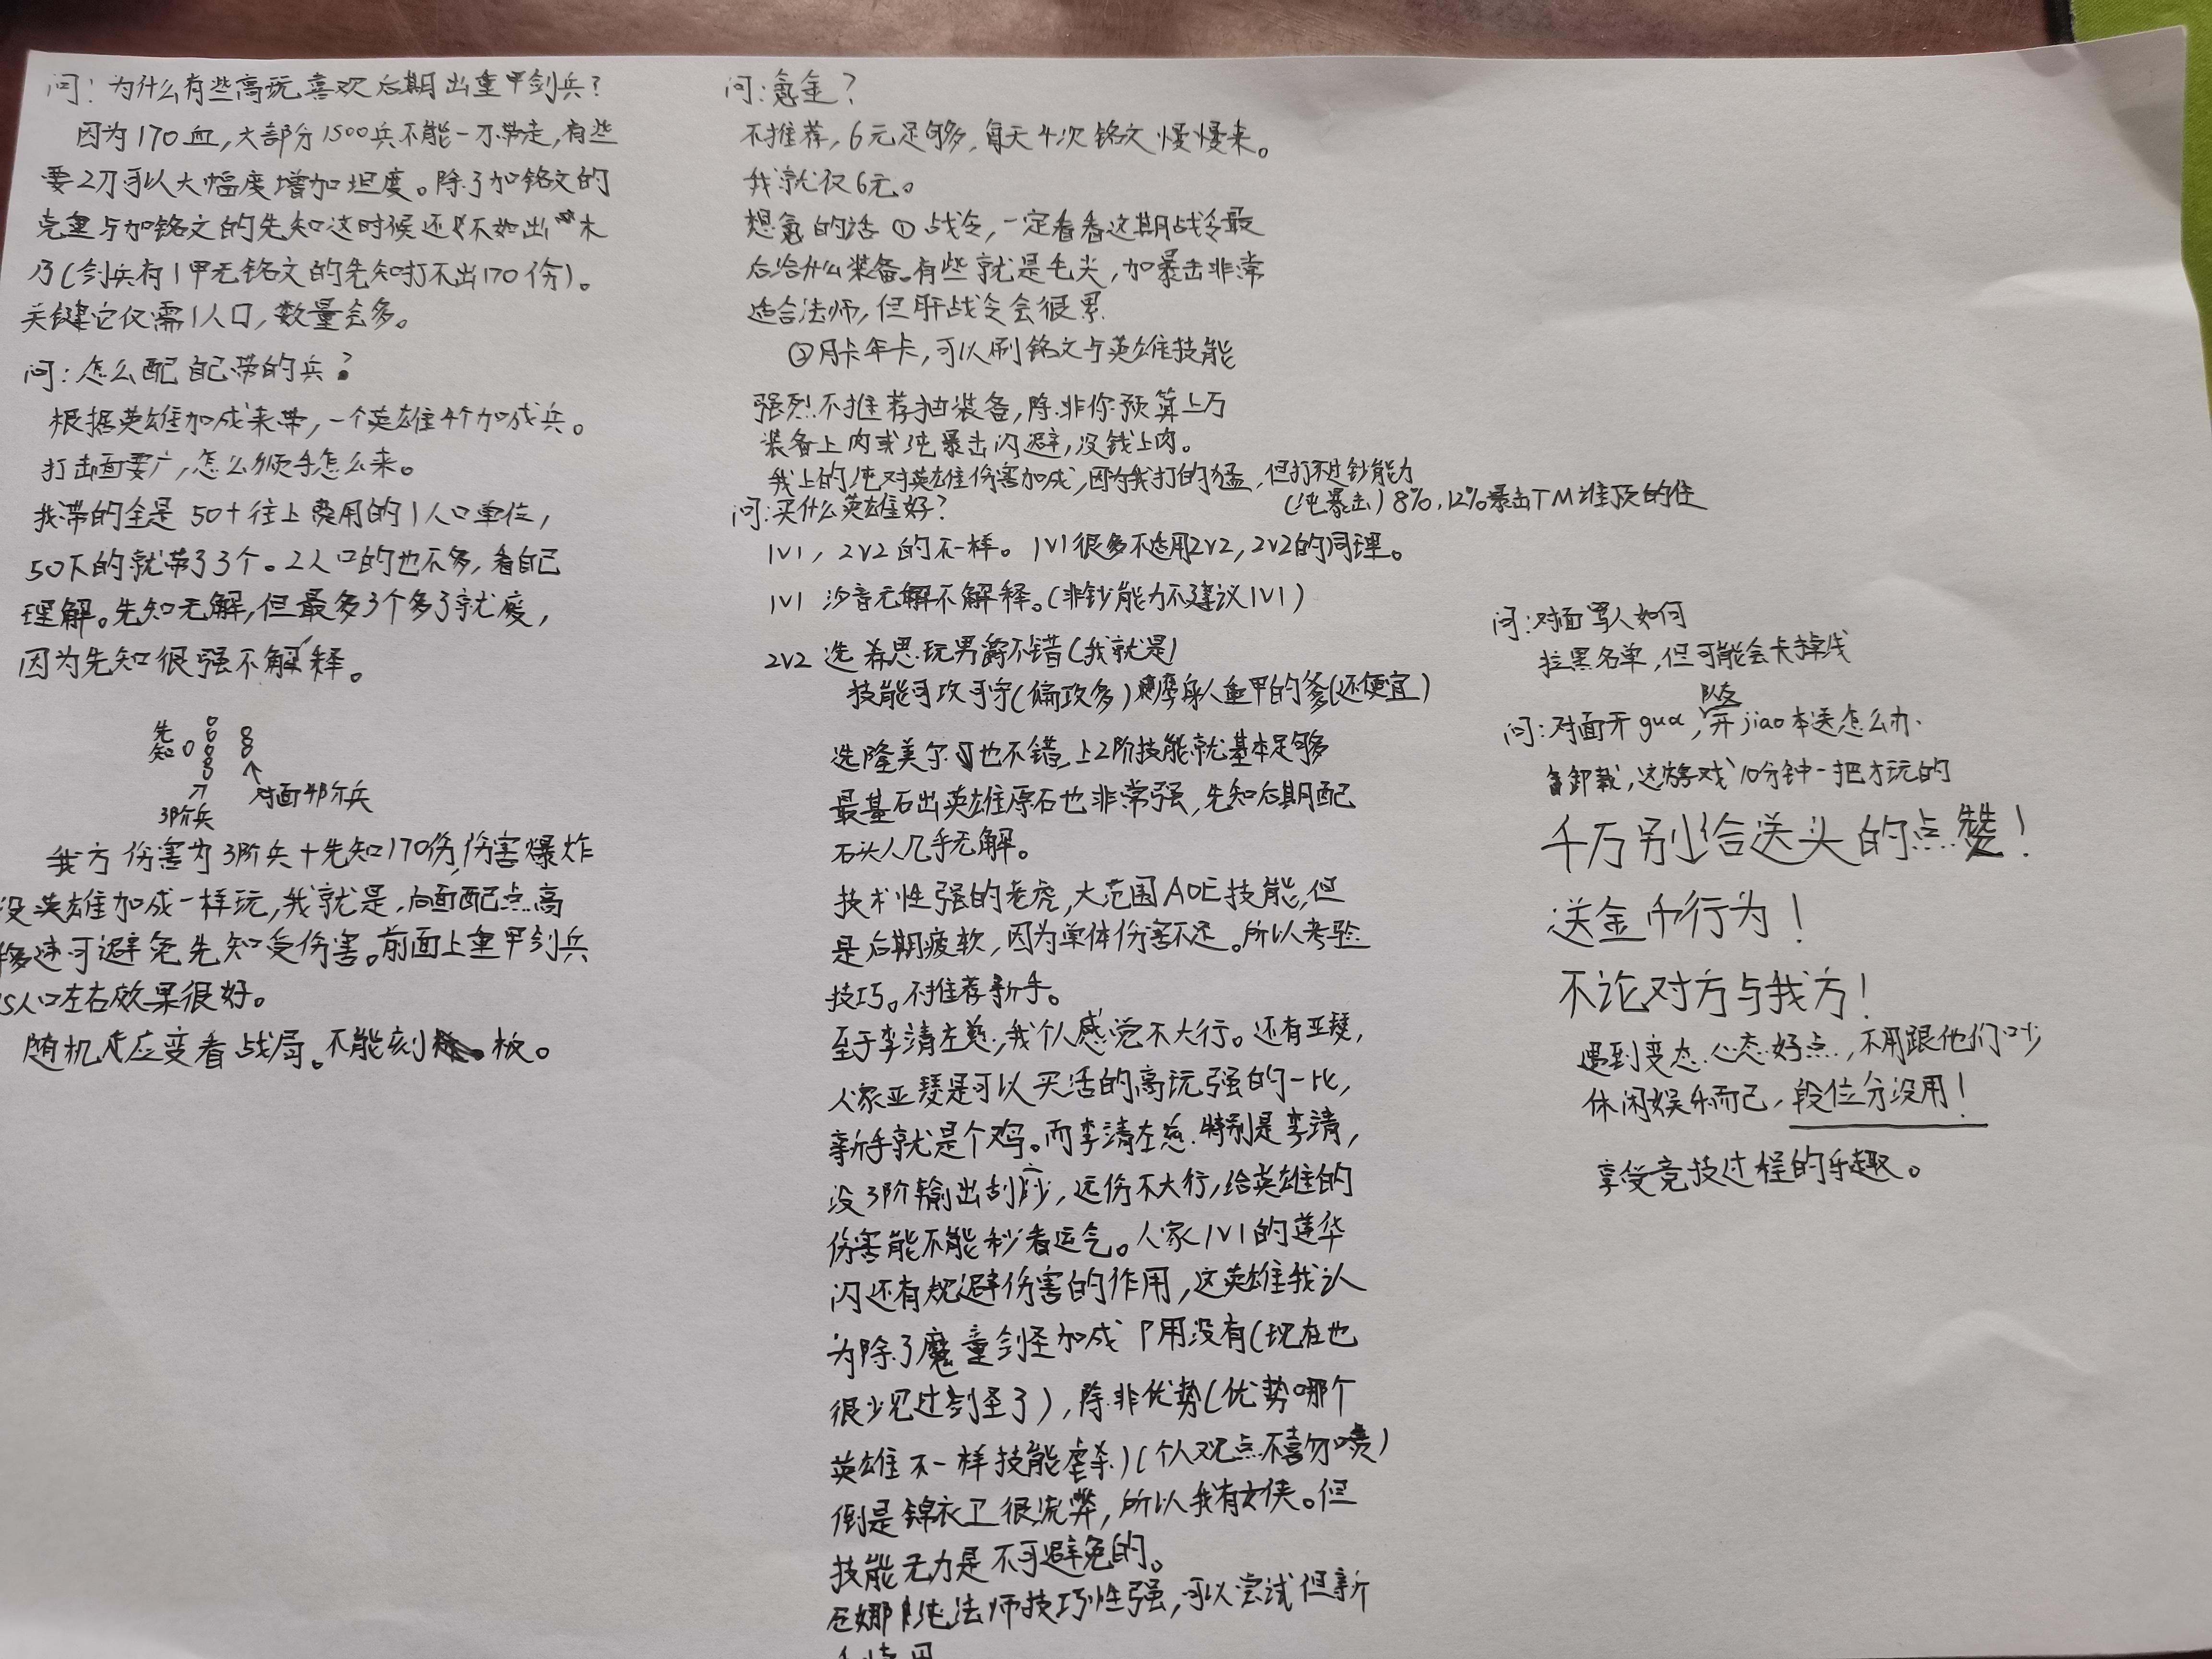 问：为什么有些高玩喜欢后期出重甲剑兵？
因为170血，大部分1500兵不能一刀带走，有些
要2刀可以大幅度增加坦度。除了加铭文的
克重与加铭文的先知这时候还不如出木
乃（剑兵有1甲无铭文的先知打不出170伤）。
关键它仅需1人口，数量会多。
问：怎么配自己带的兵？
根据英雄加成来带，一个英雄4个加成兵。
打击面要广，怎么顺手怎么来。
我带的全是50+往上费用的1人口单位，
50下的就带了3个。2人口的也不多，看自己
理解。先知无解，但最多3个多了就废，
因为先知很强不解释。
先知
3阶兵
对面4阶兵
我方伤害为3阶兵+先知170伤，伤害爆炸
没英雄加成一样玩，我就是，后面配点高
移速可避免先知受伤害。前面上重甲剑兵
15人口左右效果很好。
随机应变看战局。不能刻板。
问：氪金？
不推荐，6元足够，每天4次铭文慢慢来。
我就仅6元。
想氪的话①战令，一定看看这期战令最
后给什么装备。有些就是毛尖，加暴击非常
适合法师，但肝战令会很累
②月卡年卡，可以刷铭文与英雄技能
强烈不推荐抽装备，除非你预算上万
装备上肉或纯暴击闪避，没钱上肉。
我上的纯对英雄伤害加成，因为我打的猛，但打不过钞能力
（纯暴击）8%，12%暴击TM谁顶的住
问：买什么英雄好？
1V1，2V2的不一样。1V1很多不适用2V2，2V2的同理。
1V1 汐音无解不解释。（非钞能力不建议1V1）
2V2 选希思，玩男爵不错（我就是）
技能可攻可守（偏攻多）摩身人重甲的爹（还便宜）
选隆美尔也不错，上2阶技能就基本足够
最基石出英雄原石也非常强，先知后期配
石头人几乎无解。
技术性强的老虎，大范围AOE技能，但
是后期疲软，因为单体伤害不足。所以考验
技巧。不推荐新手。
至于李清左慈，我个人感觉不大行。还有亚瑟，
人家亚瑟是可以买活的高玩强的一比，
新手就是个鸡。而李清左慈，特别是李清，
没3阶输出刮痧，远伤不大行，给英雄的
伤害能不能秒看运气。人家1V1的莲华
闪还有规避伤害的作用，这英雄我认
为除了魔童剑圣加成P用没有（现在也
很少见过剑圣了），除非优势（优势哪个
英雄不一样技能虐杀）（个人观点不喜勿喷）
倒是锦衣卫很流弊，所以我有女侠。但
技能无力是不可避免的。
娜纯法师技巧性强，可以尝试但新
问：对面骂人如何
拉黑名单，但可能会卡掉线
问：对面开gua，队友开jiao本送怎么办。
卸载，这游戏10分钟一把才玩的
千万别给送头的点赞！
送金币行为！
不论对方与我方！
遇到变态心态好点，不用跟他们吵
休闲娱乐而已，段位分没用！
享受竞技过程的乐趣。